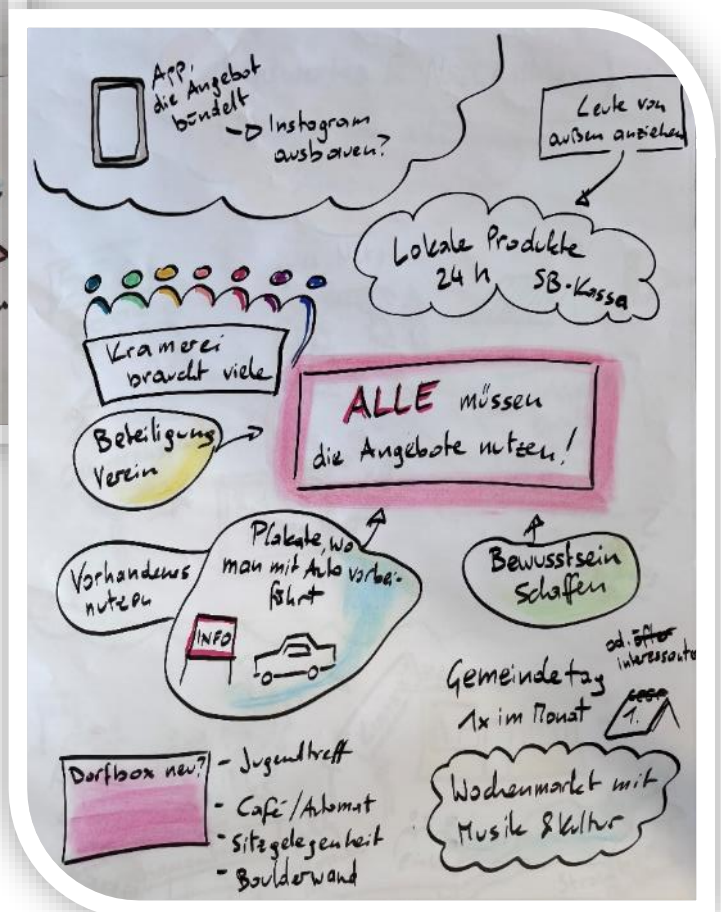 App,
die Angebot
bündelt
Instagram
ausbauen?
Leute von
außen anziehen
Lokale Produkte
24 h SB-Kassa
Kramerei
braucht viele
ALLE müssen
die Angebote nutzen!
Beteiligung
Verein
Vorhandenes
nutzen
Plakate, wo
man mit Auto vorbei-
fährt
INFO
Bewusstsein
Schaffen
Gemeindetag
1x im Monat
od. öfter
interessante
1.
Dorfbox neu?
- Jugendtreff
- Café/Automat
- Sitzgelegenheit
- Boulderwand
Wochenmarkt mit
Musik & Kultur